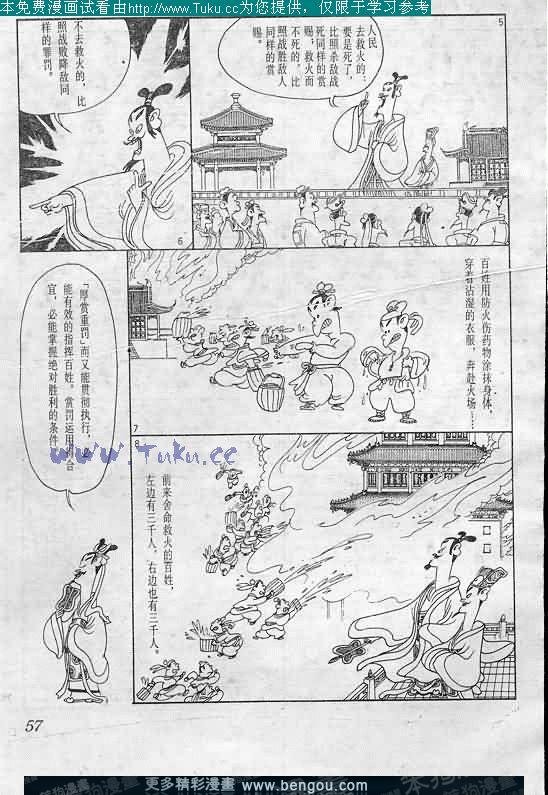 本免费漫画试看由 http://www.Tuku.cc为您提供，仅限于学习参考
5
人民
去救火的：
要是死了，
比照杀敌战
死同样的赏
赐；救火而
不死的，比
照战胜敌人
同样的赏
赐。
不去救火的，比
照战败降敌同
样的罪罚。
6
百姓用防火伤药物涂抹身体，
穿着沾湿的衣服，奔赴火场……
7
8
前来舍命救火的百姓，
左边有三千人，右边也有三千人。
「厚赏重罚」而又能贯彻执行，
能有效的指挥百姓。赏罚运用
宜，必能掌握绝对胜利的条件
www.Tuku.cc
57
更多精彩漫画 www.bengou.com